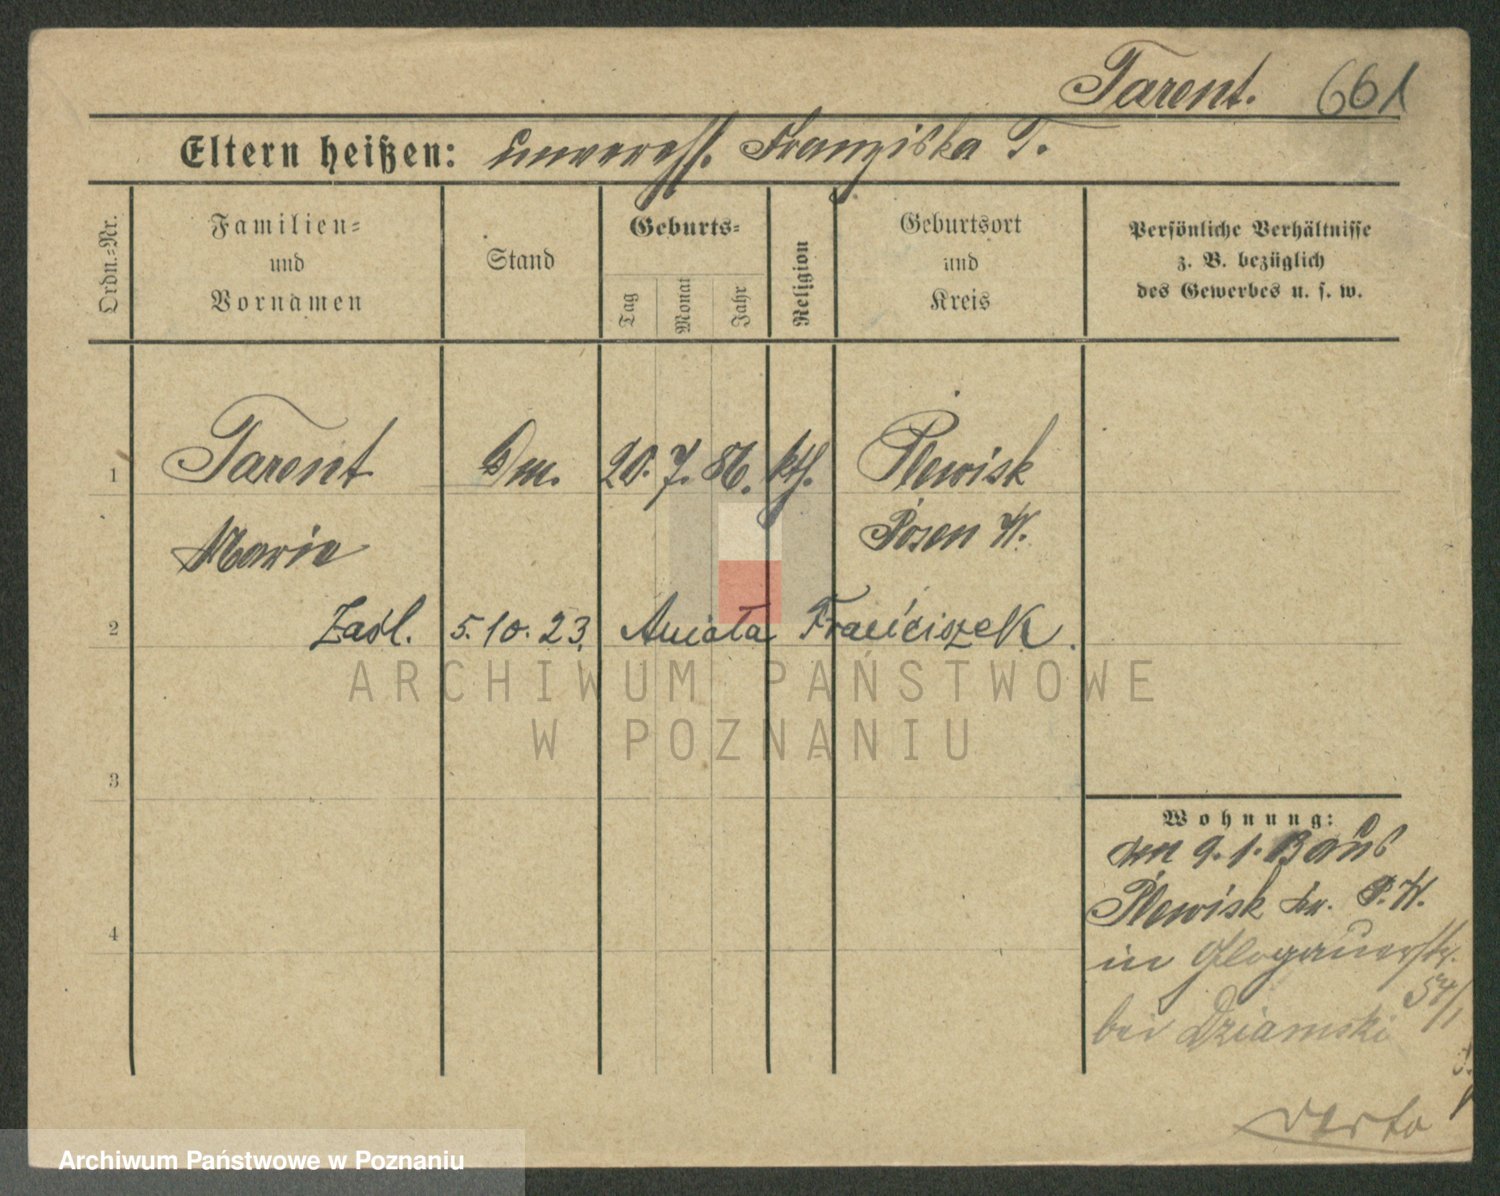 Tarent. 661
Eltern heißen: unverehl. Franziska T.
Ordn.-Nr.
Familien- und Vornamen
Stand
Geburts-
Tag
Monat
Jahr
Religion
Geburtsort und Kreis
Persönliche Verhältnisse
z. B. bezüglich
des Gewerbes u. s. w.
1 Tarent Dm. 20. 7. 86. kth. Plewisk
Marie Posen W.
2 Zaśl. 5. 10. 23. Franciszek.
3
4
Wohnung:
den 9. 1. 13 aus
Plewisk kr. P. W.
in Glogauerstr.
54/1
bei Dziamski
verto
ARCHIWUM PAŃSTWOWE
W POZNANIU
Archiwum Państwowe w Poznaniu